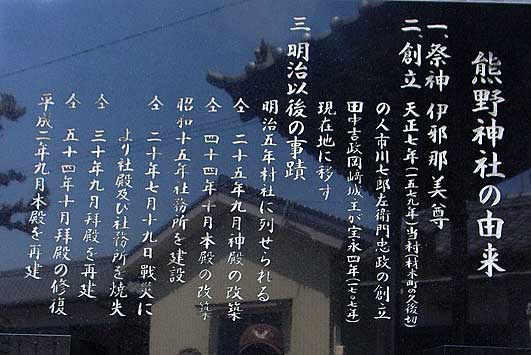 熊野神社の由来
一、祭神 伊邪那美尊
二、創立 天正七年(一五七九年)当村(科木町の久後切)
の人市川七郎左衛門忠政の創立
田中吉政岡崎城主が宝永四年(一七〇七年)
現在地に移す
三、明治以後の事蹟
明治五年村社に列せられる
仝 二十五年九月神殿の改築
仝 四十四年十月本殿の改築
昭和十五年社務所を建設
仝 二十年七月十九日戦災に
より社殿及び社務所を焼失
仝 三十年九月拝殿を再建
仝 五十四年十月拝殿の修復
平成二年九月本殿を再建